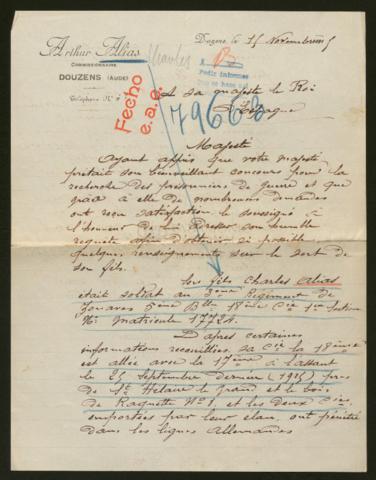 Arthur Alias
COMMISSIONNAIRE
DOUZENS (AUDE)
Téléphone N°
Charles
Douzens, le 15 Novembre
Pedir informes
Fecho
e.a.c.
A sa majesté le Roi
d'Espagne
Majesté
Ayant appris que votre majesté
prêtait son bienveillant concours pour la
recherche des prisonniers de guerre et que
grâce à elle de nombreuses demandes
ont reçu satisfaction le soussigné a
l'honneur de lui adresser son humble
requête afin d'obtenir si possible
quelques renseignements sur le sort de
son fils.
Son fils Charles Alias
était soldat au 3ème Régiment de
Zouaves 5ème Btn 18ème Cie 1re Section
N° Matricule 17724.
D'après certaines
informations recueillies sa Cie la 18ème
est allée avec la 17ème à l'assaut
le 25 Septembre dernier (1915) près
de St Hilaire le grand et le bois
de Raquette N° 1, et les deux Cies
emportées par leur élan, ont pénétré
dans les lignes Allemandes